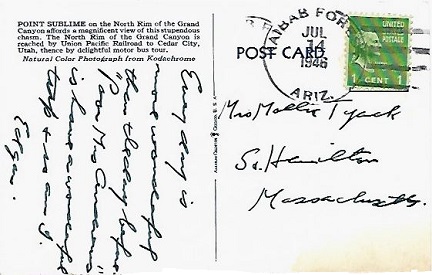 POINT SUBLIME on the North Rim of the Grand
Canyon affords a magnificent view of this stupendous
chasm. The North Rim of the Grand Canyon is
reached by Union Pacific Railroad to Cedar City,
Utah, thence by delightful motor bus tour.
Natural Color Photograph from Kodachrome
Every day is
more wonderful
than the day before
is have a wonderful
trip + so am I.
Edgar.
KAIBAB FOREST
JUL
14
1946
ARIZ.
UNITED
1 CENT 1
POST CARD
Mrs Mollie Tyack
So. Hamilton
Massachusetts.